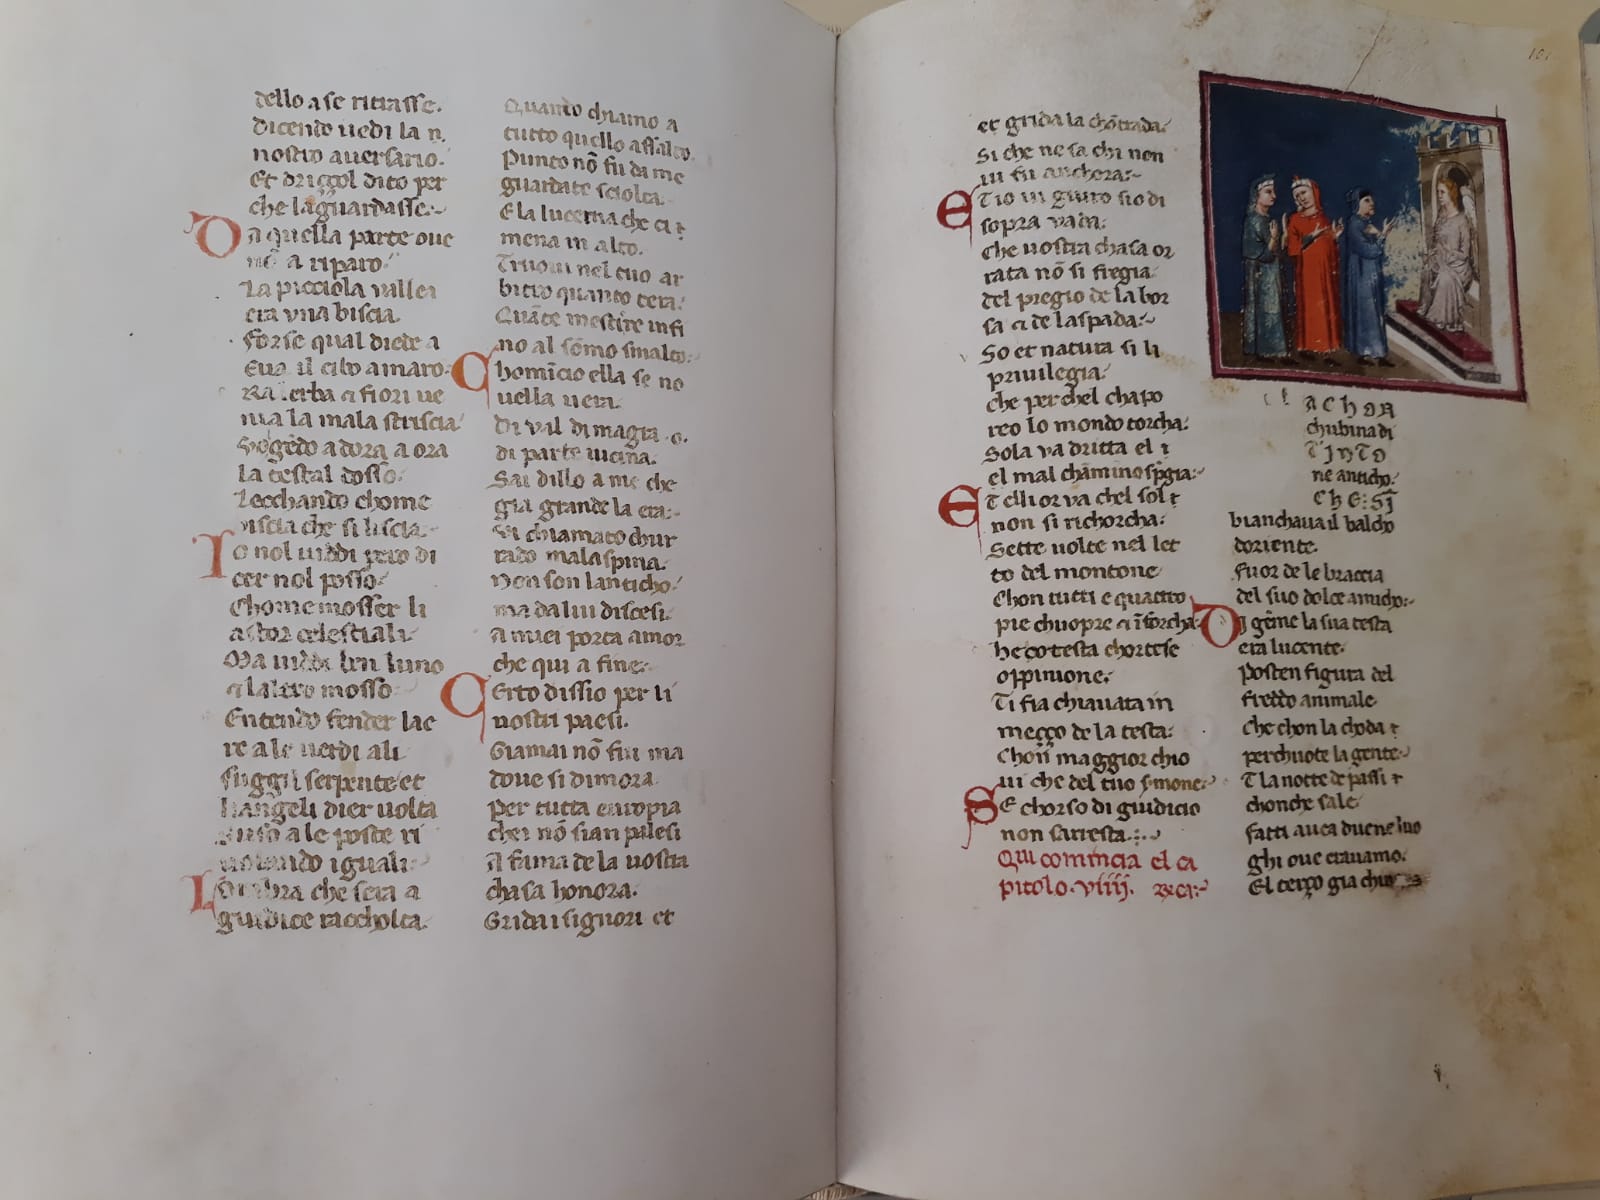 dello a se ritrasse.
Dicendo uedi la n.
nostro auersario.
Et driççol dito per
che la guardasse:
Da quella parte oue
nō a riparo.
La picciola vallea
era vna biscia.
Forse qual diede a
Eua il cibo amaro.
Tra lerba et fiori ue
nia la mala striscia
Volgēdo adora a ora
la testal dosso.
Lecchando chome
biscia che si liscia.
Io nol uiddi pero di
cer nol posso.
Chome mosser li
astor celestiali.
Ma uiddi ben luno
et laltro mosso.
Entendo fender lae
re a le uerdi ali
fuggi serpente et
liangeli dier uolta
suso a le poste ri
uolando iguali:
Lombra che sera a
giudice raccholta.
Quando chiamo a
tutto quello assalto.
Punto nō fu da me
guardare sciolta.
E la lucerna che ti
mena in alto.
Truoui nel tuo ar
bitro quanto cera.
Quāte mestire infi
no al sōmo smalto:
Chomīcio ella se no
uella uera.
Di val di magra .o.
di parte uicina.
Sai dillo a me che
gia grande la era:
Fui chiamato chur
rado malaspina.
Non son lanticho
ma da lui discesi
A miei portai amor
che qui a fine:
Certo dissio per li
nostri paesi.
Giamai nō fui ma
doue si dimora
Per tutta europia
chei nō sian palesi
A fama de la uostra
chasa honora.
Grida i signori et
et grida la chōtrada.
Si che ne sa chi non
ui fu anchora:
Et io ui giuro sio di
sopra vada.
Che uostra chasa or
rata nō si fregia
del pregio de la bor
sa et de laspada:
So et natura si li
priuilegia.
che perchel chapo
reo lo mondo torcha.
Sola va dritta el
el mal chāmino spgia:
Et elli or va chel sol
non si richorcha.
Sette uolte nel let
to del montone
Chon tutti e quatro
pie chuopre et īforcha.
he cotesta chortese
oppinione.
Ti fia chiauata in
meçço de la testa.
Chon maggior chio
ui che del tuo smone.
Se chorso di giudicio
non sarresta.
Qui comincia el ca
pitolo. viiij. Reca:
La chon
chubina di
Tito
ne anticho.
Che: si
bianchaua il balcho
doriente.
Fuor de le braccia
del suo dolce amicho:
Di gēme la sua testa
era lucente.
Posten figura del
freddo animale
Che chon la choda
perchuote la gente
Et la notte de passi
chonche sale
Fatti auea duene luo
ghi oue erauamo.
El terço gia chi
101